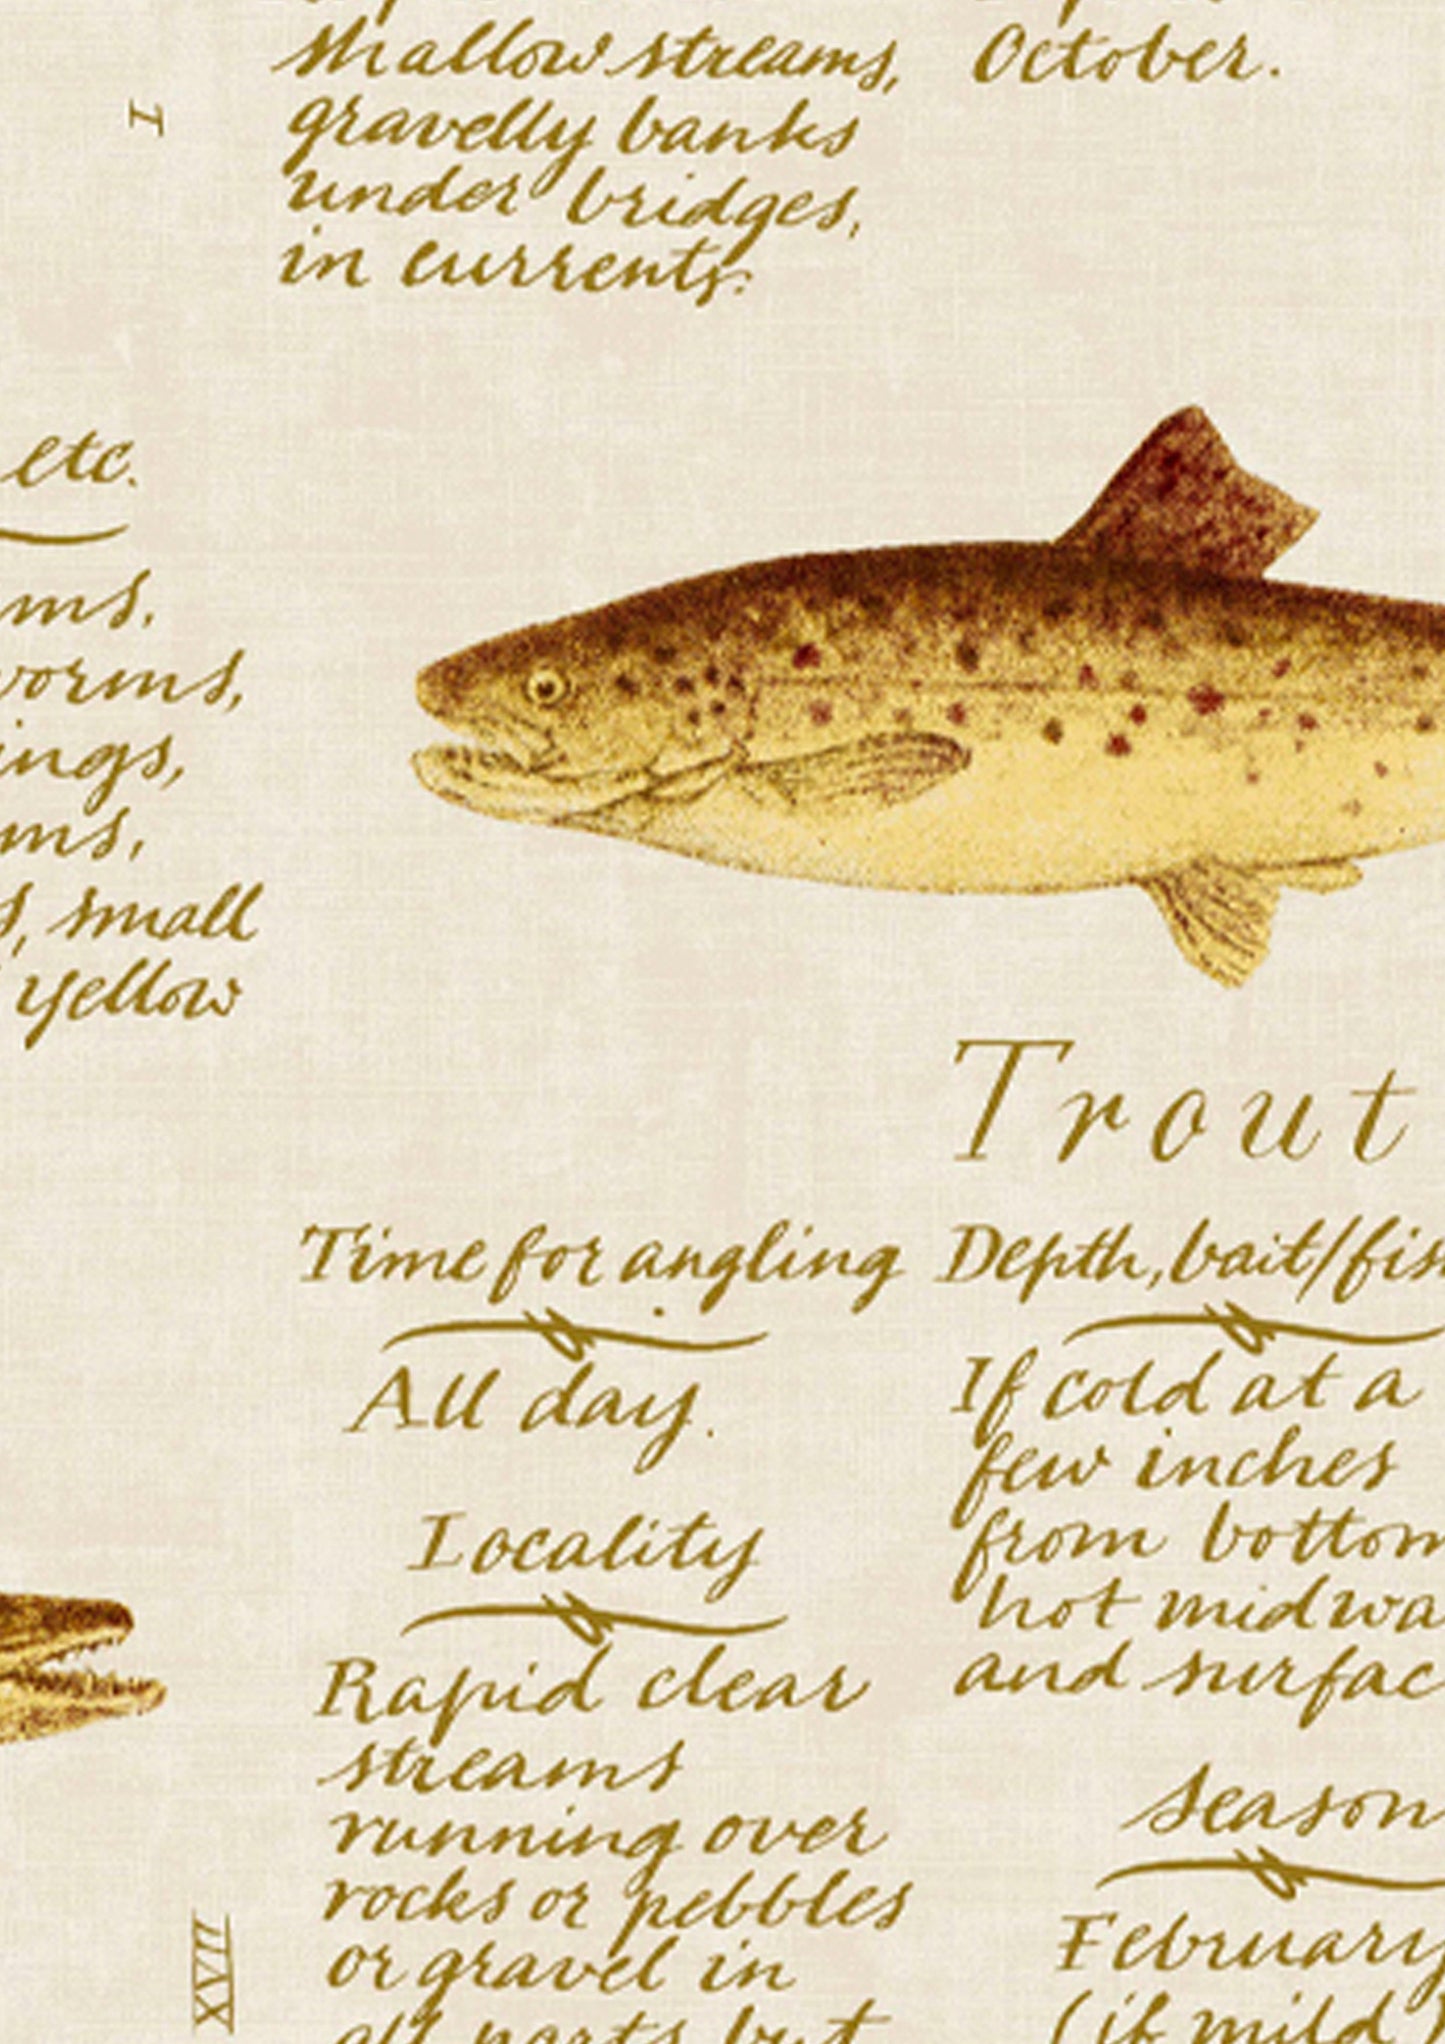 shallow streams,
gravelly banks
under bridges,
in currents.
October.
I
etc.
small
yellow
Trout
Time for angling
All day.
Locality
Rapid clear
streams
running over
rocks or pebbles
or gravel in
all parts but
Depth, bait/fis
If cold at a
few inches
from bottom
hot midwa
and surfac
Season
February
(if mild)
XVII